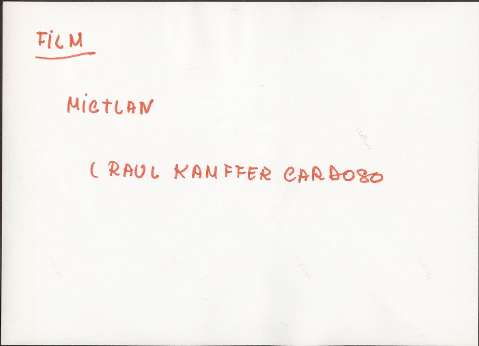 FILM
MICTLAN
( RAUL KAMFFER CARDOSO